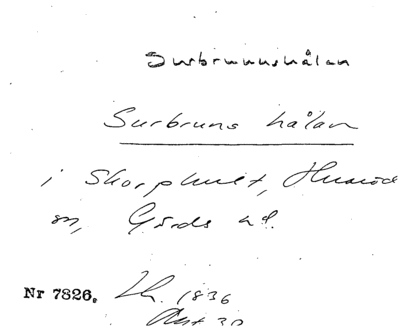 Surbrunnshålan
Surbruns hålan
i Skorphult, Huaröd
sn, Gärds hd.
Nr 7826. Lh. 1836
Akt 30